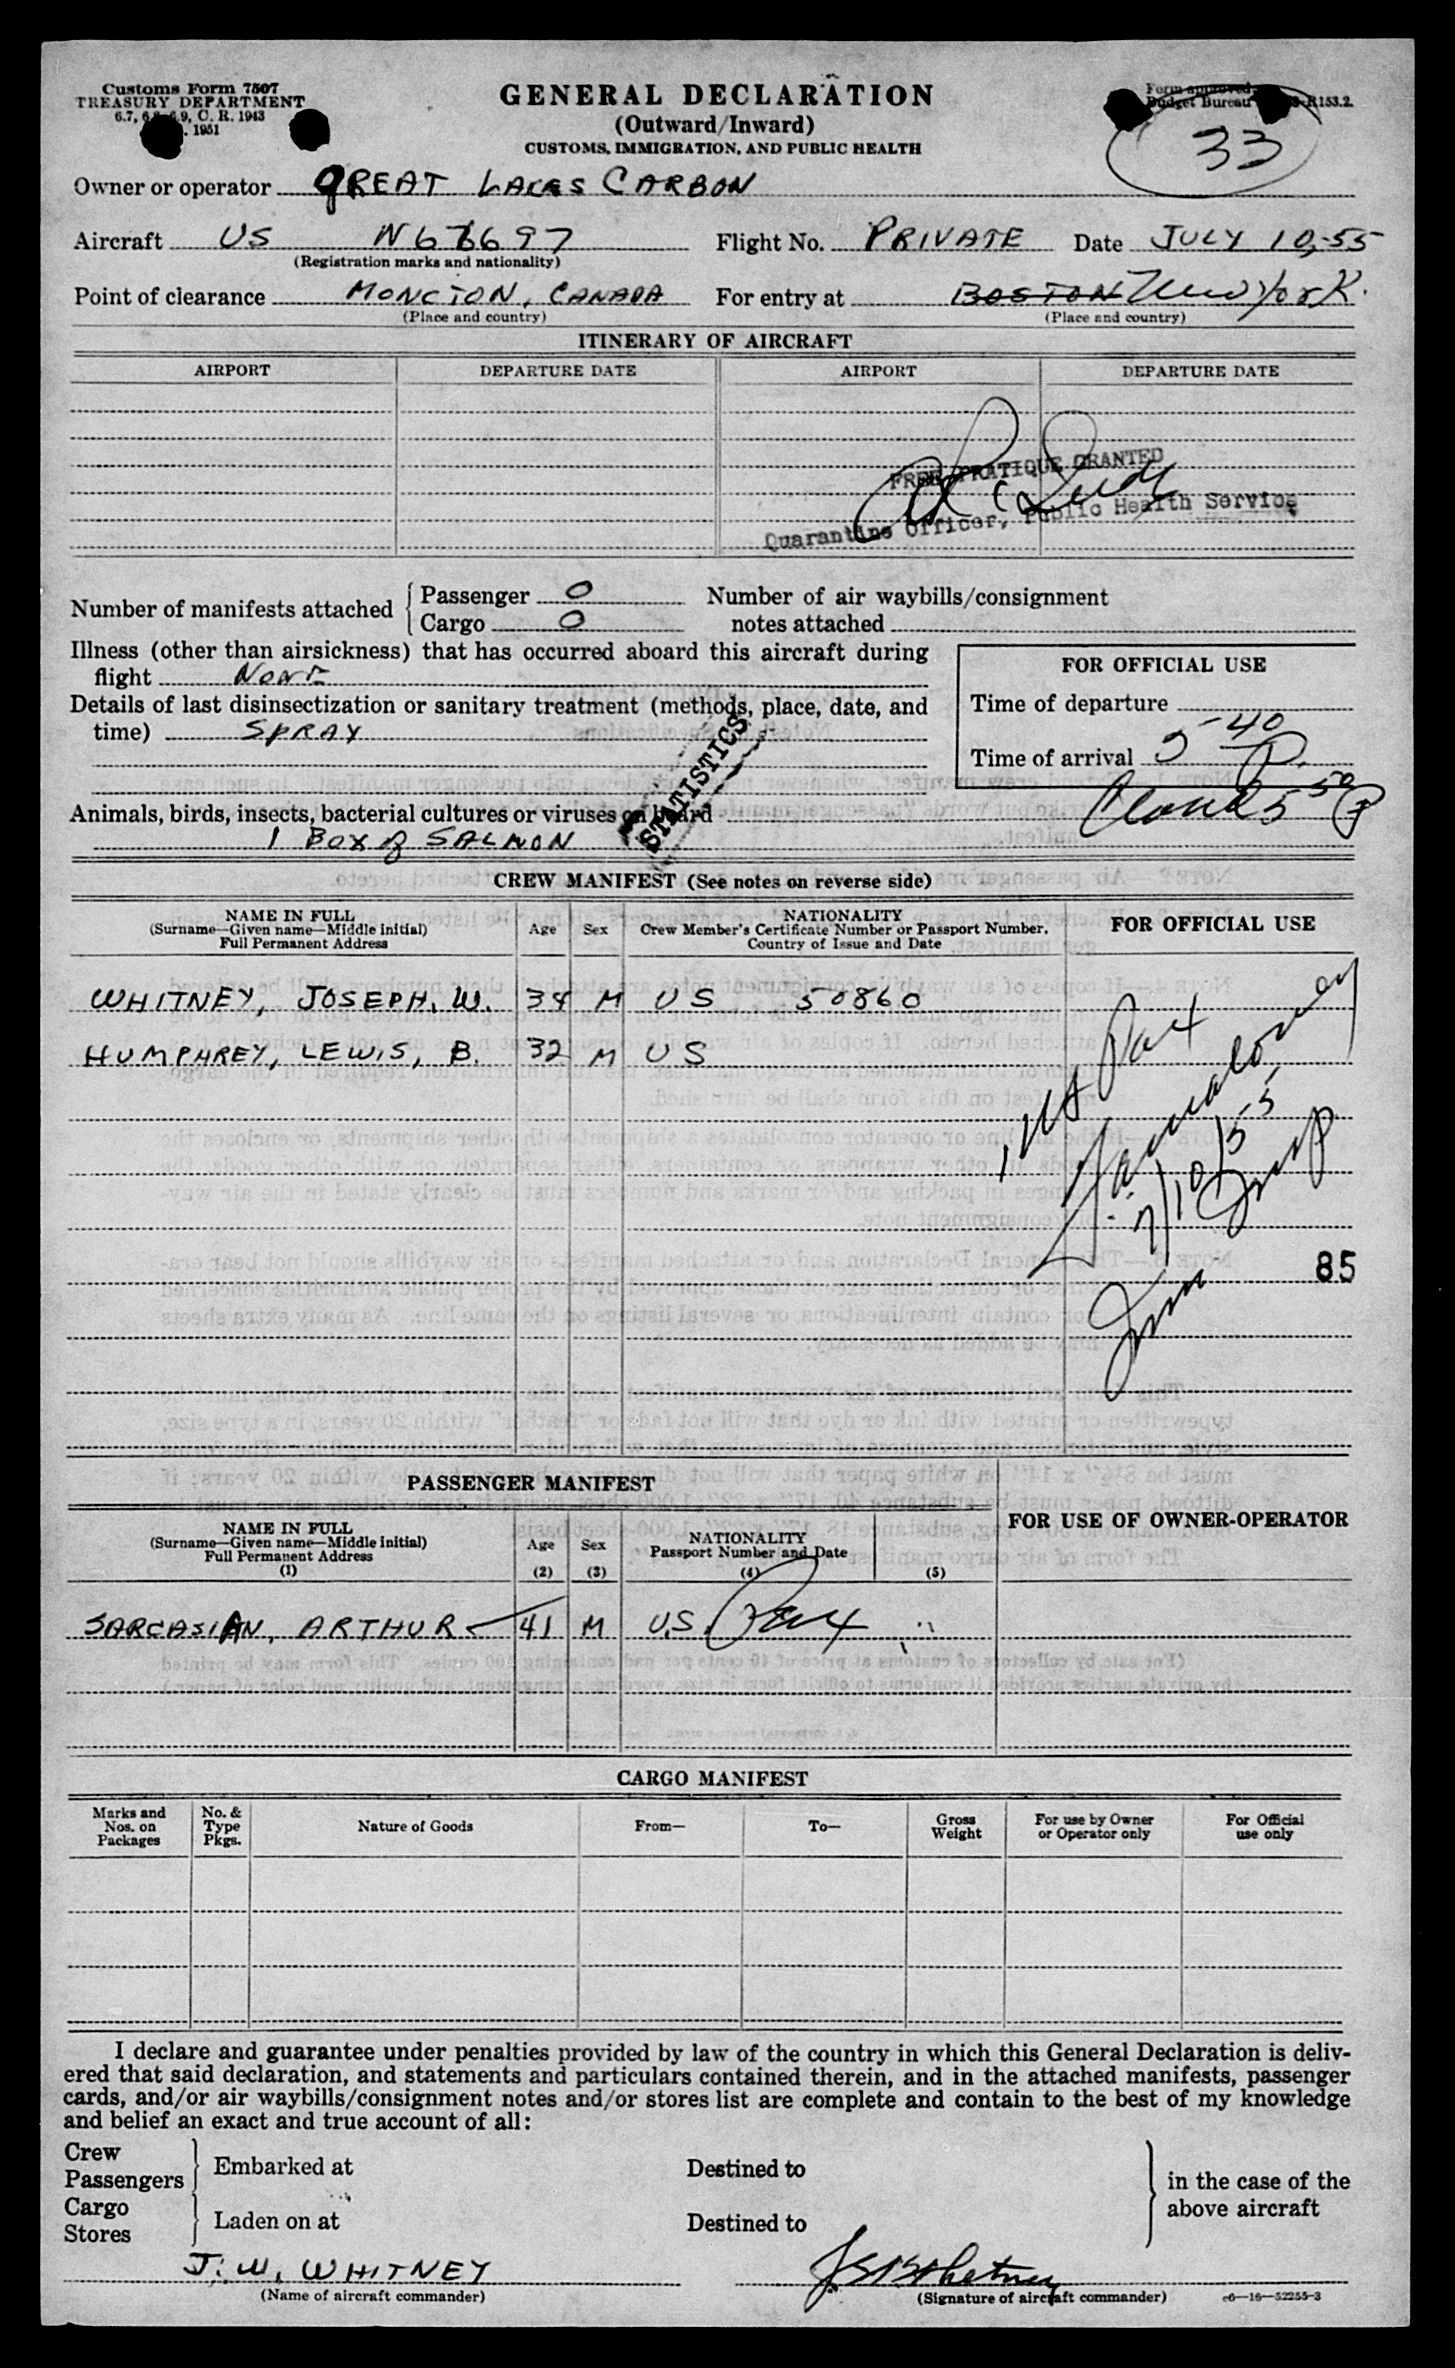 Customs Form 7507
TREASURY DEPARTMENT
6.7, 6.9, C. R. 1943
1951
GENERAL DECLARATION
(Outward/Inward)
CUSTOMS, IMMIGRATION, AND PUBLIC HEALTH
Form approved.
Budget Bureau R153.2.
33
Owner or operator GREAT LAKES CARBON
Aircraft US Flight No. PRIVATE Date JULY 10,-55
(Registration marks and nationality)
Point of clearance MONCTON, CANADA For entry at BOSTON New York.
(Place and country) (Place and country)
ITINERARY OF AIRCRAFT
AIRPORT DEPARTURE DATE AIRPORT DEPARTURE DATE
FREE PRATIQUE GRANTED
Quarantine Officer, Public Health Service
Number of manifests attached Passenger 0 Number of air waybills/consignment
Cargo 0 notes attached
Illness (other than airsickness) that has occurred aboard this aircraft during
flight NONE
FOR OFFICIAL USE
Details of last disinsectization or sanitary treatment (methods, place, date, and
time) SPRAY
Time of departure
Time of arrival 5-40 P.
STATISTICS
Animals, birds, insects, bacterial cultures or viruses on board
5 50 P
1 BOX of SALMON
CREW MANIFEST (See notes on reverse side)
NAME IN FULL
(Surname—Given name—Middle initial)
Full Permanent Address
Age Sex
NATIONALITY
Crew Member's Certificate Number or Passport Number,
Country of Issue and Date
FOR OFFICIAL USE
WHITNEY, JOSEPH, W. 34 M US 50860
HUMPHREY, LEWIS, B. 32 M US
7/10/55
85
PASSENGER MANIFEST
NAME IN FULL
(Surname—Given name—Middle initial)
Full Permanent Address
(1)
Age
(2)
Sex
(3)
NATIONALITY
Passport Number and Date
(4) (5)
FOR USE OF OWNER-OPERATOR
SARCASIAN, ARTHUR 41 M U.S.
CARGO MANIFEST
Marks and
Nos. on
Packages
No. &
Type
Pkgs.
Nature of Goods
From—
To—
Gross
Weight
For use by Owner
or Operator only
For Official
use only
I declare and guarantee under penalties provided by law of the country in which this General Declaration is deliv-
ered that said declaration, and statements and particulars contained therein, and in the attached manifests, passenger
cards, and/or air waybills/consignment notes and/or stores list are complete and contain to the best of my knowledge
and belief an exact and true account of all:
Crew
Passengers Embarked at Destined to
Cargo
Stores Laden on at Destined to
in the case of the
above aircraft
J. W. WHITNEY
(Name of aircraft commander) (Signature of aircraft commander) c6—16—52255-3